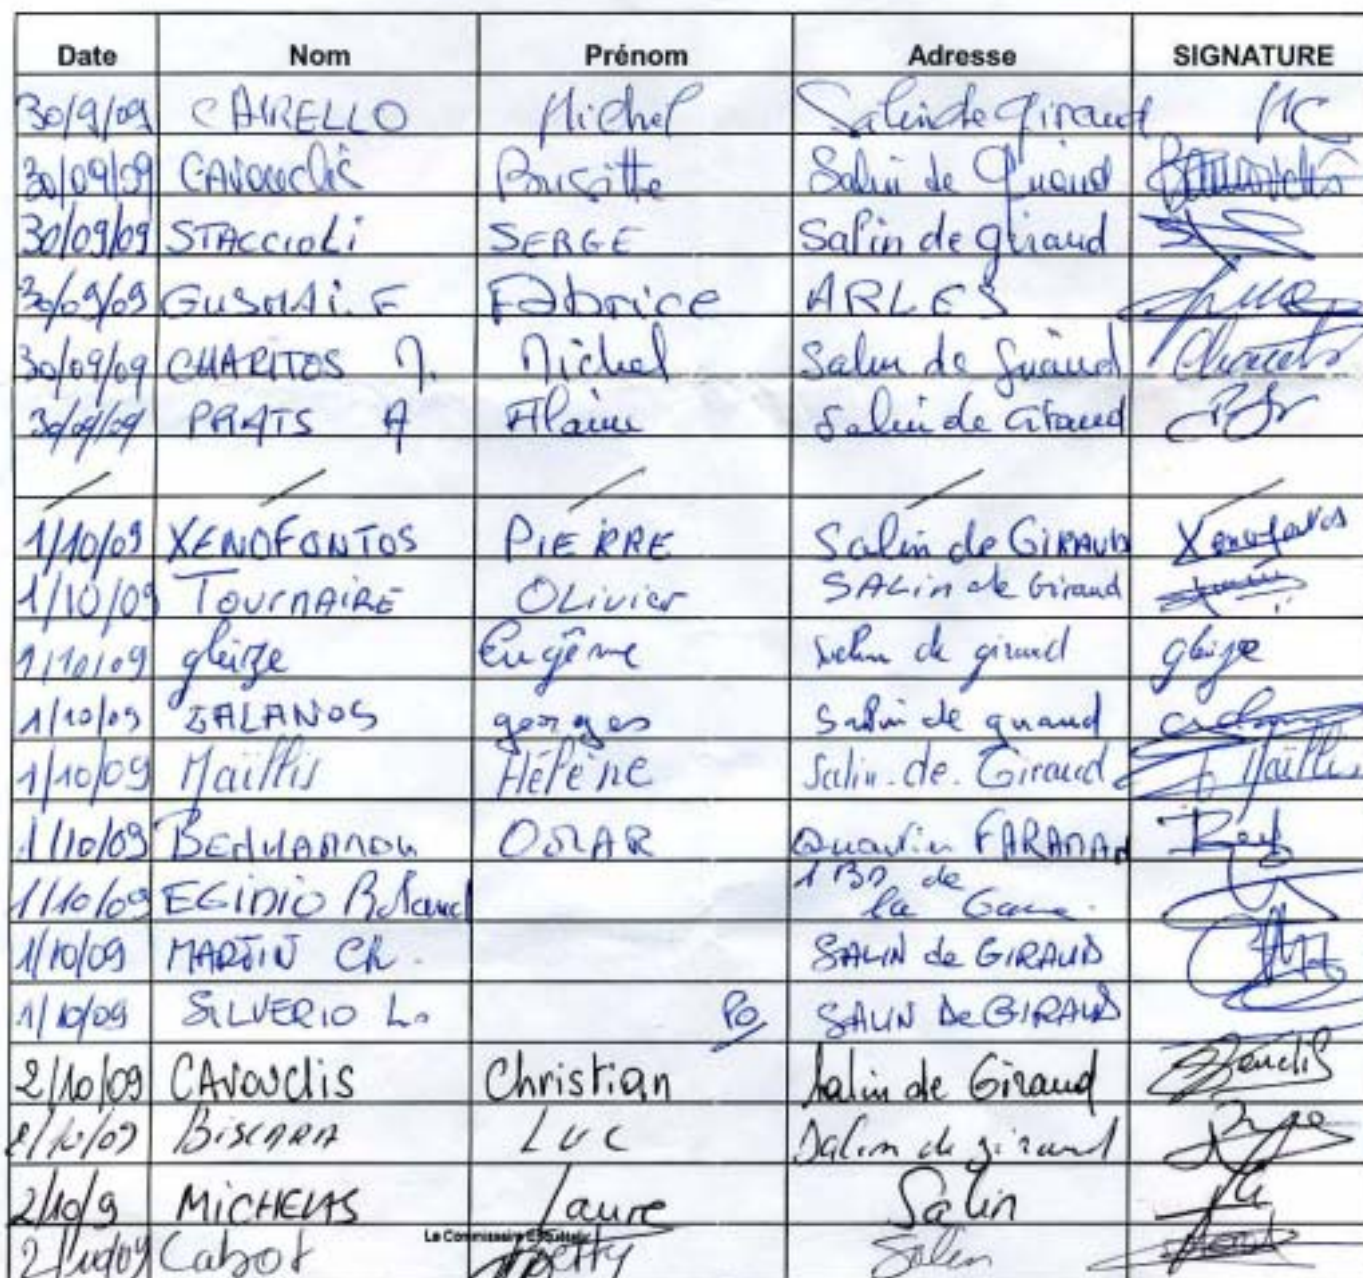 Date Nom Prénom Adresse SIGNATURE
30/9/09 CAIRELLO Michel Salin de Giraud MC
30/09/09 CAVOUCLIS Brigitte Salin de Giraud
30/09/09 STACCIOLI SERGE Salin de giraud
30/09/09 Fabrice ARLES
30/09/09 CHARITOS M. Michel Salin de Giraud
30/09/09 PRATS A Alain Salin de Giraud
1/10/09 XENOFONTOS PIERRE Salin de GIRAUD Xenofontos
1/10/09 TOURNAIRE OLivier SALin de Giraud
1/10/09 gleize Eugène Salin de giraud gleize
1/10/09 GALANOS georges Salin de giraud
1/10/09 Maïllis Hélène Salin.de.Giraud Maïllis
1/10/09 BENHAMMOU OMAR Quartier FARAMAN
1/10/09 EGIDIO Roland 1 BD de
la Gare.
1/10/09 MARTIN Ch. SALIN de GIRAUD
1/10/09 SILVERIO L. Po SALIN De GIRAUD
2/10/09 CAVOUCLIS Christian Salin de Giraud
2/10/09 BISCARA LUC Salin de giraud
2/10/9 MICHELAS Laure Salin
Le Commissaire Enquêteur
2/10/09 Cabot Betty Salin